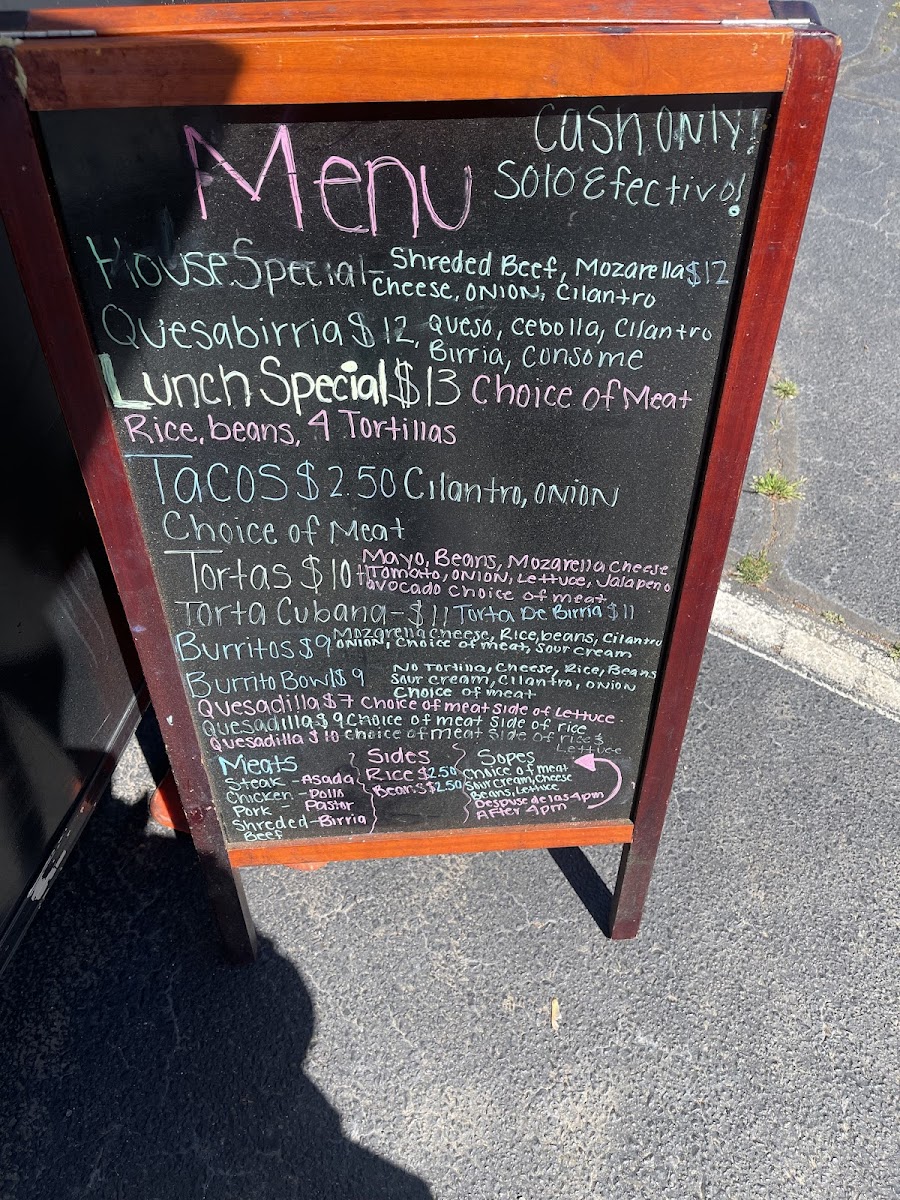 Menu
Cash ONLY!
Solo Efectivo!
House Special - Shreded Beef, Mozarella $12
Cheese, ONION, Cilantro
Quesabirria $12, Queso, Cebolla, Cilantro
Birria, Consome
Lunch Special $13 Choice of Meat
Rice, beans, 4 Tortillas
Tacos $2.50 Cilantro, ONION
Choice of Meat
Tortas $10 Mayo, Beans, Mozarella Cheese
Tomato, ONION, Lettuce, Jalapeno
avocado Choice of meat
Torta Cubana - $11 Torta De Birria $11
Burritos $9 Mozarella Cheese, Rice, beans, Cilantro
ONION, Choice of meat, Sour cream
Burrito Bowl $9 No Tortilla, Cheese, Rice, Beans
Sour cream, Cilantro, onion
Choice of meat
Quesadilla $7 Choice of meat Side of Lettuce
Quesadilla $9 Choice of meat Side of rice
Quesadilla $10 Choice of meat Side of rice &
Lettuce
Meats
Steak - Asada
Chicken - Pollo
Pork - Pastor
Shreded - Birria
Beef
Sides
Rice $2.50
Beans $2.50
Sopes
Choice of meat
Sour cream, Cheese
Beans, Lettuce
Despuse de las 4pm
After 4pm